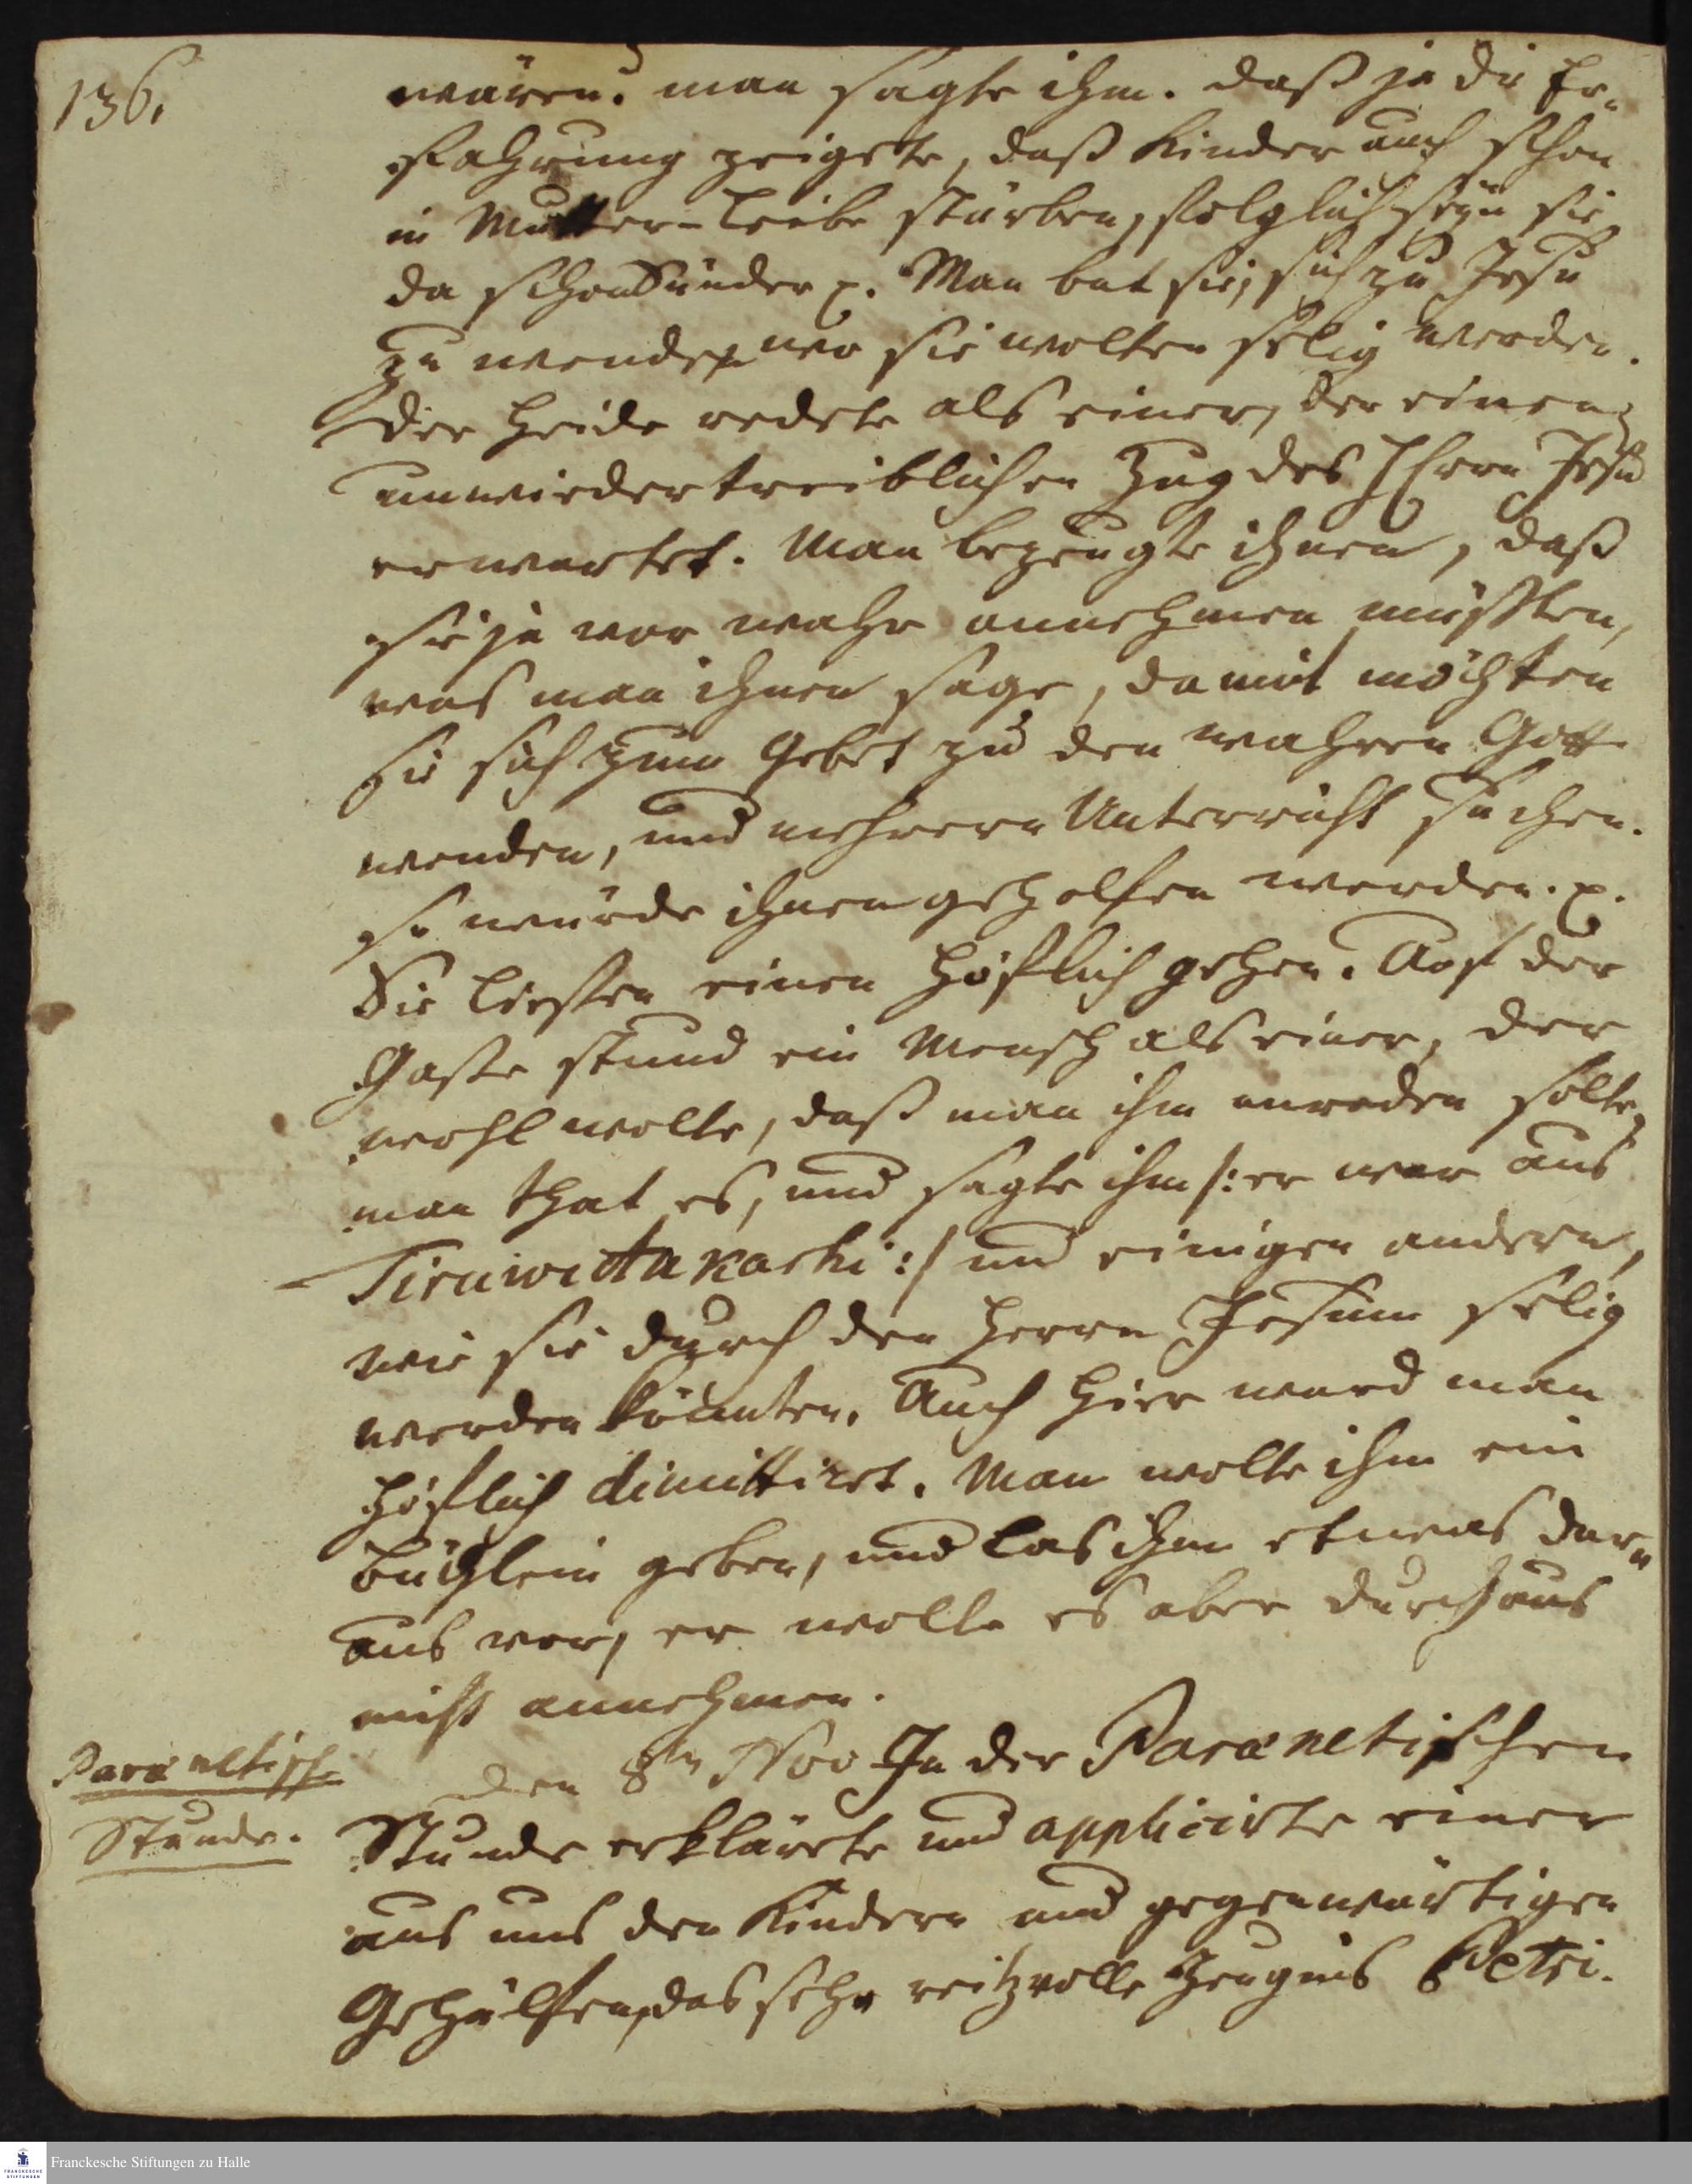 136.
wären? man sagte ihm. daß ja die Er-
fahrung zeigete, daß Kinder auch schon
in Mutter-Leibe stürben, folglich seyn sie
da schon Sünder p. Man bat sie, sich zu Jesu
zu wenden wo sie wolten selig werden.
Der Heide redete als einer, der einen
unwiedertreiblichen Zug des HErrn Jesu
erwartet. Man bezeugte ihnen, daß
sie ja vor wahr annehmen müsten,
was man ihnen sage, damit möchten
sie sich zum Gebet zu den wahren Gott
wenden, und mehrern Unterricht suchen.
so würde ihnen geholfen werden. p.
Sie liessen einen höflich gehen. Auf der
Gasse stund ein Mensch als einer, der
wohl wolte, daß man ihm anreden solte,
man that es, und sagte ihm /: er war aus
Tiruwittakarhi :/ und einigen andern,
wie sie durch den Herrn Jesum selig
werden könnten. Auch hier ward man
höflich dimittiret. Man wolte ihm ein
Büchlein geben, und las ihm etwas dar-
aus vor, er wolte es aber durchaus
nicht annehmen.
Parænetische
Stunde.
Den 8ten Nov In der Parænetischen
Stunde erklärete und applicirte einer
aus uns den Kindern und gegenwärtigen
Gehülfen, das sehr reitzvolle Zeugnis Petri.
Franckesche Stiftungen zu Halle
FRANCKESCHE STIFTUNGEN